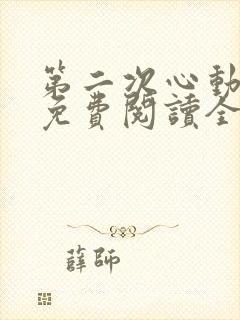 第二次心動
免費閱讀全
薛師